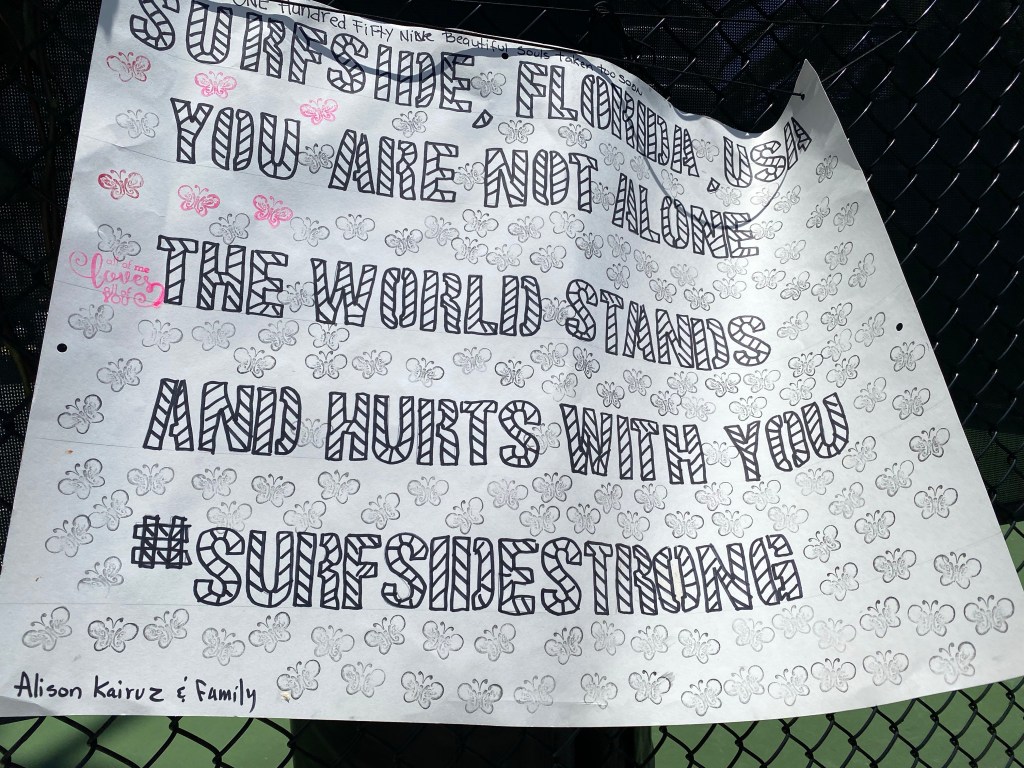 One Hundred Fifty Nine Beautiful Souls Taken too soon
SURFSIDE, FLORIDA, USA
YOU ARE NOT ALONE
all of me
loves
all of
you
THE WORLD STANDS
AND HURTS WITH YOU
#SURFSIDESTRONG
Alison Kairuz & Family